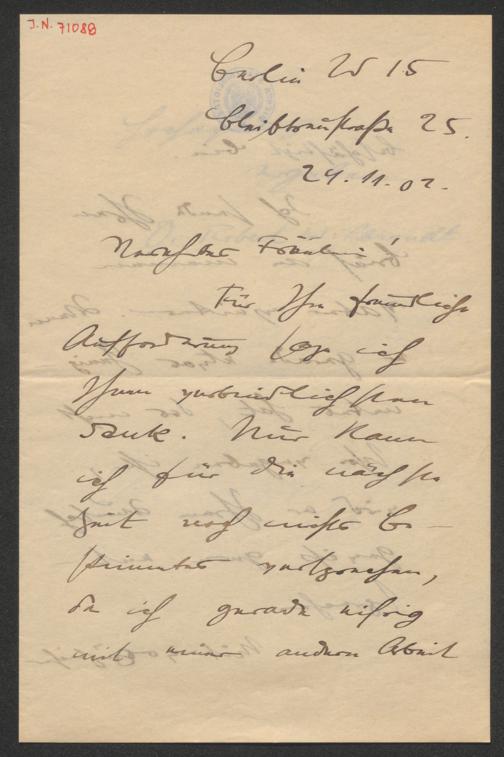 J.N. 71088
Berlin W 15
Bleibtreustraße 25.
24.11.02.
Verehrtes Fräulein!
Für Ihre freundliche
Aufforderung sage ich
Ihnen verbindlichsten
Dank. Nur kann
ich für die nächste
Zeit noch nichts be-
stimmtes versprechen,
da ich gerade eifrig
mit einer andern Arbeit